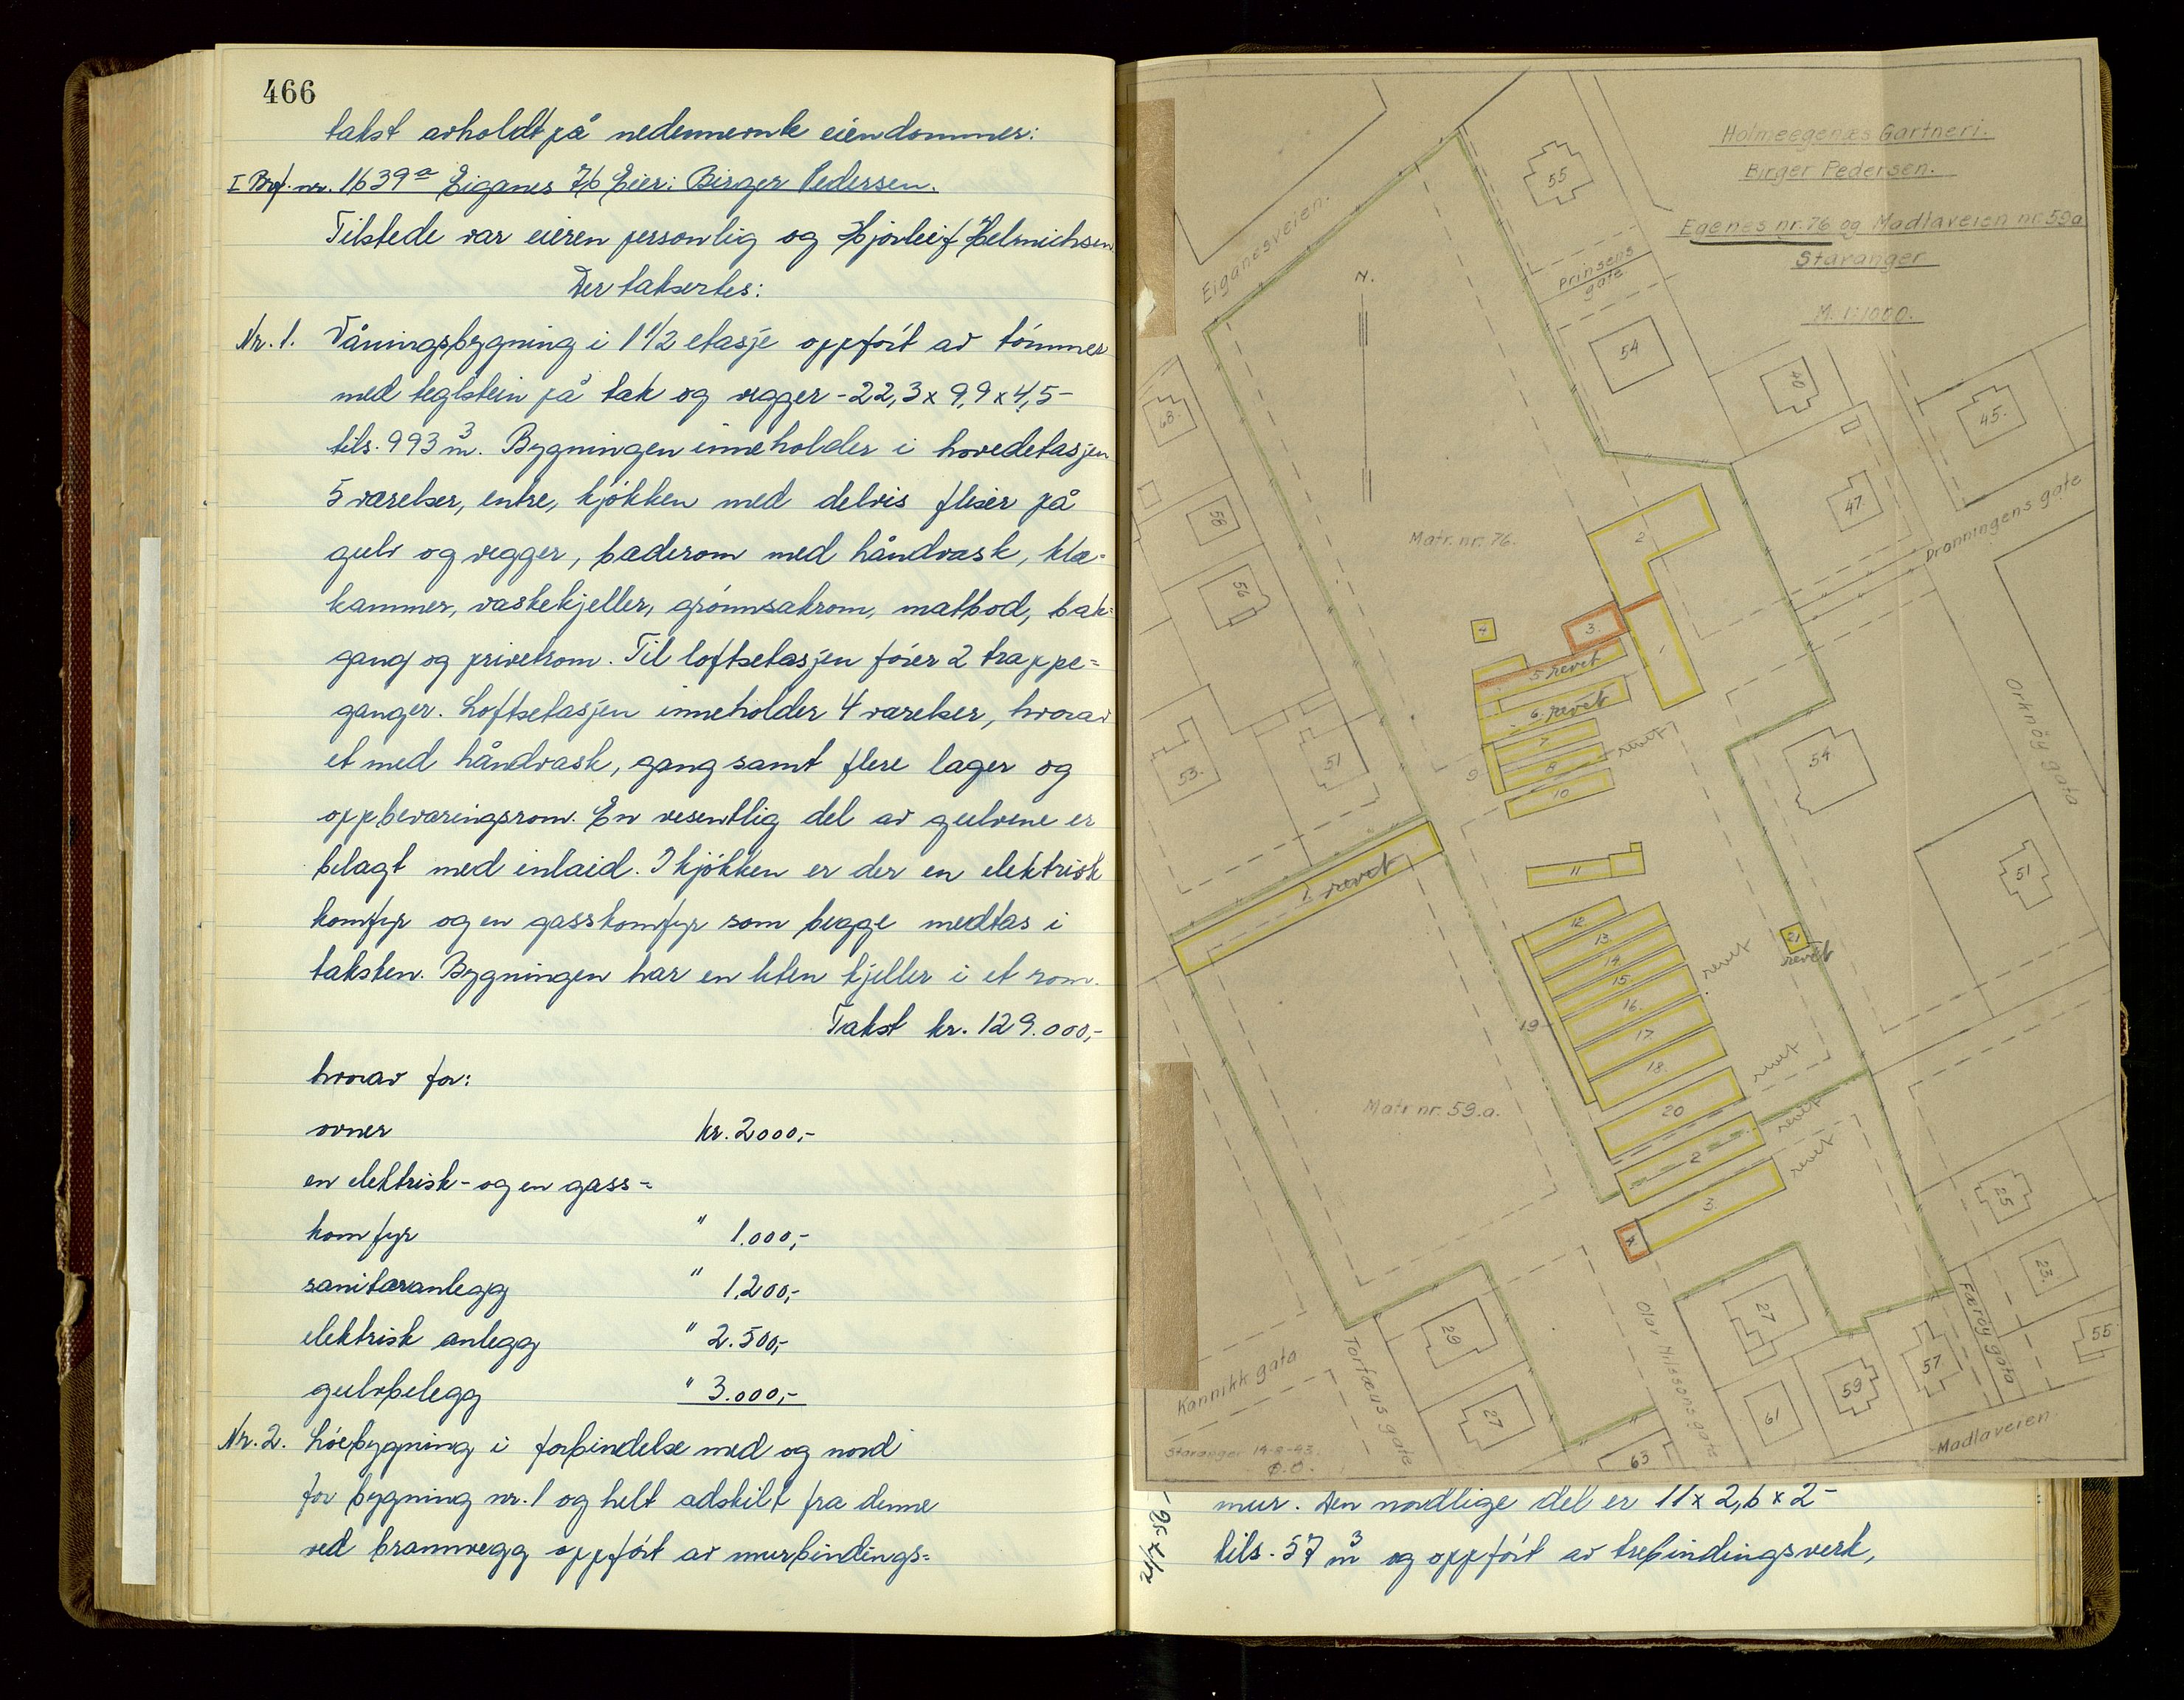 466
takst avholdt på nedennevnte eiendommer:
I Brf. nr. 1639a Eiganes 76 Eier: Birger Pedersen.
Tilstede var eieren personlig og Hjorleif Helmichsen
Der taksertes:
Nr. 1. Våningsbygning i 1 1/2 etasje oppfört av tömmer
med teglstein på tak og vegger - 22,3 x 9,9 x 4,5 -
tils. 993 m³. Bygningen inneholder i hovedetasjen
5 værelser, entre, kjökken med delvis fliser på
gulv og vegger, baderom med håndvask, klæ-
kammer, vaskekjeller, grönnsakrom, matbod, bak-
gang og privetrom. Til loftsetasjen förer 2 trappe=
ganger. Loftsetasjen inneholder 4 værelser, hvorav
et med håndvask, gang samt flere lager og
oppbevaringsrom. En vesentlig del av gulvene er
belagt med inlaid. I kjökken er der en elektrisk
komfyr og en gasskomfyr som begge medtas i
taksten. Bygningen har en liten kjeller i et rom.
Takst kr. 129.000,-
hvorav for:
ovner kr. 2000,-
en elektrisk- og en gass-=
komfyr " 1.000,-
sanitæranlegg " 1.200,-
elektrisk anlegg " 2.500,-
gulvbelegg " 3.000,-
Nr. 2. Löebygning i forbindelse med og nord
for bygning nr. 1 og helt adskilt fra denne
ved brannvegg oppfört av murbindings=
Holmeegenæs Gartneri.
Birger Pedersen.
Egenes nr. 76 og Madlaveien nr. 59a
Stavanger
M. 1:1000.
Eiganesveien.
N.
55
Prinsens
gate
54
40
45.
47.
68.
58
56
Dronningens gate
Matr. nr. 76.
2
4
3.
1
5 revet
6. revet
7
8
revet
9
10
53.
51
54
Orknöy gata
1. revet
11
51
12
13.
14.
15.
16.
17.
18.
19
revet
21
revet
20
revet
Matr nr. 59.a.
2
revet
3.
revet
K
25
23.
55
27
29
27
57
59
61
63
Færöy gata
Kannikk gata
Torfæus gate
Olav Nilssons gate
Madlaveien.
Stavanger 14-8-43.
Ø.Ö.
mur. Den nordlige del er 11 x 2,6 x 2 -
tils. 57 m³ og oppfört av trebindingsverk,